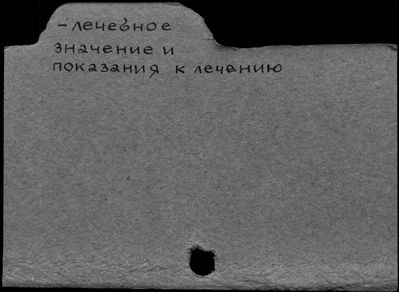 - лечебное
значение и
показания к лечению